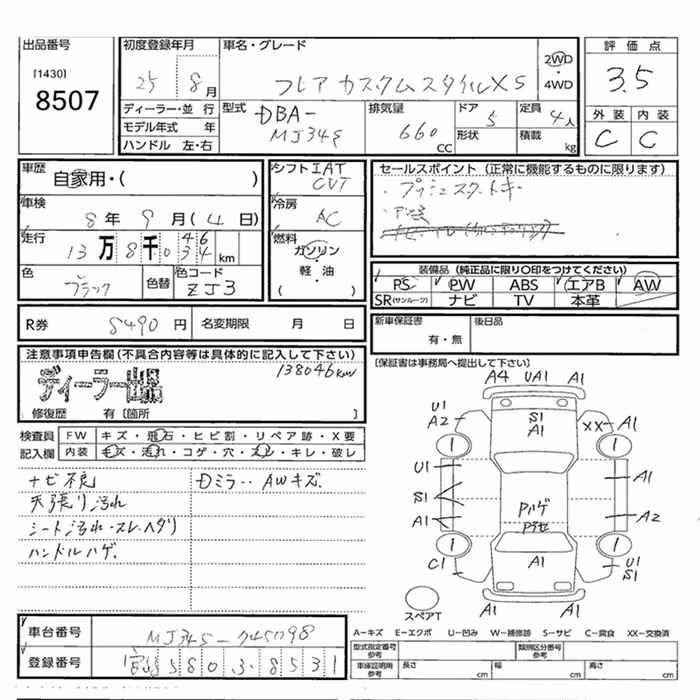 出品番号 [1430] 8507
初度登録年月 25 8月
車名・グレード フレア カスタムスタイルXS
2WD・4WD
評価点 3.5
外装 内装
C C
ディーラー・並行
モデル年式 年
ハンドル 左・右
型式 DBA-
MJ34S
排気量 660 CC
ドア 5
形状
定員 4人
積載 kg
車歴 自家用・( )
車検 8年 9月(4日)
走行 13万8千0 46 km
色 ブラック
色替
色コード ZJ3
シフト IAT
CVT
冷房 AC
燃料 ガソリン・軽・油
( )
セールスポイント(正常に機能するものに限ります)
・プッシュスタートキー
装備品(純正品に限り〇印をつけてください)
PS PW ABS エアB AW
SR(サンルーフ) ナビ TV 本革
R券 8490円
名変期限 月 日
新車保証書 有・無
後日品
[保証書は事務局へ提出して下さい]
注意事項申告欄(不具合内容等は具体的に記入して下さい)
138046km
ディーラー出品
修復歴 有[箇所 ]
検査員記入欄
FW キズ・飛石・ヒビ割・リペア跡・X要
内装 キズ・汚れ・コゲ・穴・スレ・キレ・破レ
ナビ不良
天張り汚れ
シート汚れ・スレ・ヘタリ
ハンドルハゲ.
Dミラー・AWキズ.
A4 UA1 A1
U1
A2
S1
A1
XX A1
U1 A1
S1
A1 A2
Pハゲ
C1 A1 U1
S1
A1 A1
スペアT
A-キズ E-エクボ U-凹み W-補修跡 S-サビ C-腐食 XX-交換済
車台番号 MJ34S-745098
登録番号 宮 580 8531
型式指定番号 参考
類別区分番号 参考
車庫証明用 参考
長さ cm
幅 cm
高さ cm